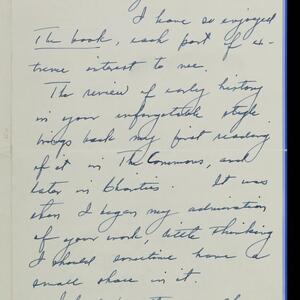 I have so enjoyed
The book, each part of ex-
treme interest to me.
The review of early history
in your unforgetable style
brings back my first reading
of it in The Commons, and
later in Charities. It was
then I began my admiration
of your work, little thinking
I should sometime have a
small share in it.